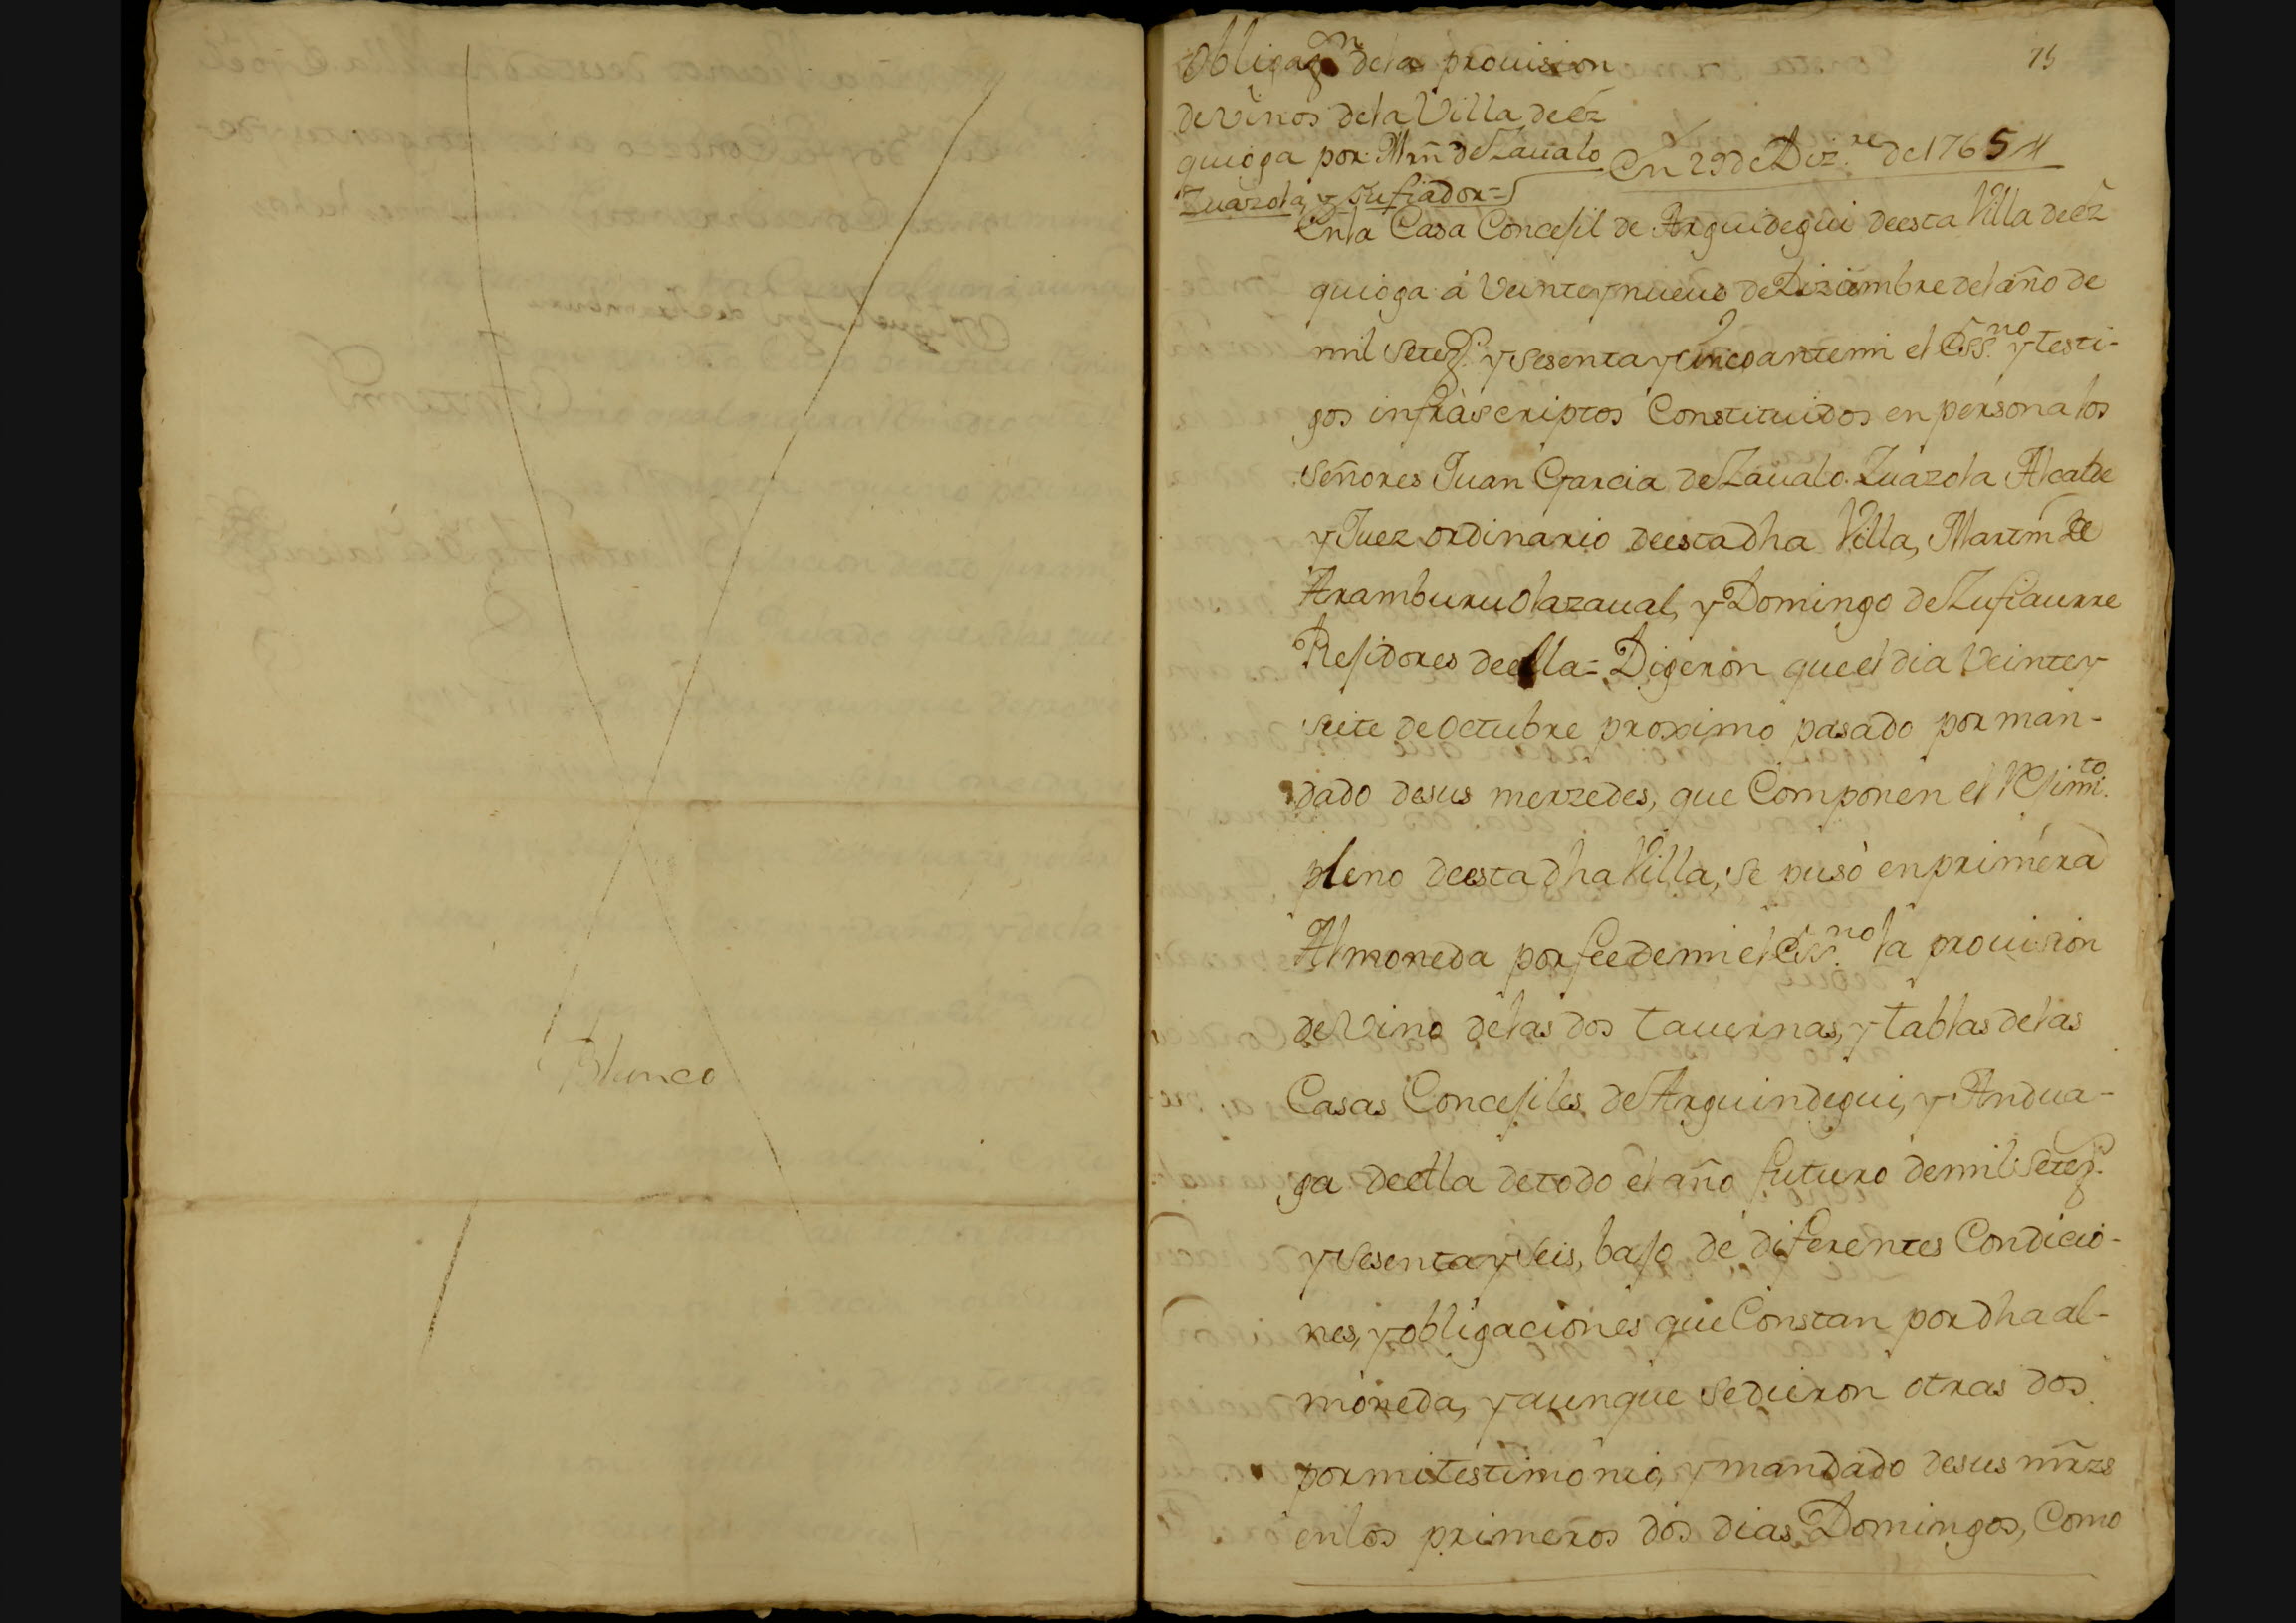 Blanco
75
Obligaz.on de la provision
de Vinos de la Villa de Ez
quioga por Mrn de Zavalo
Zuazola, y su fiador =
En 29 de Diz.re de 1765 //
En la Casa Concejil de Arguidegui de esta Villa de Ez
quioga á Veinte y nueve de Diziembre del año de
mil Setez.s y Sesenta y Cinco ante mi el Ess.no y testi-
gos infrascriptos Constituidos en persona los
Señores Juan Garcia de Zavalo Zuazola Alcalde
y Juez ordinario de esta dha Villa, Martin de
Aramburu Olazaval, y Domingo de Zufiaurre
Rejidores de ella = Digeron que el dia Veinte y
siete de Octubre proximo pasado por man-
dado de sus merzedes, que Componen el Rejimi.to
pleno de esta dha Villa, se puso en primera
Almoneda por fee de mi el Ess.no la provision
de Vino de las dos tavernas, y tablas de las
Casas Concejiles de Arguindegui, y Andua-
ga de ella de todo el año futuro de mil Setez.s
y Sesenta y Seis, bajo de diferentes Condicio-
nes, y obligaciones que Constan por dha al-
moneda, y aunque se dieron otras dos
por mi testimonio, y mandado de sus mrzs
en los primeros dos dias Domingos, Como